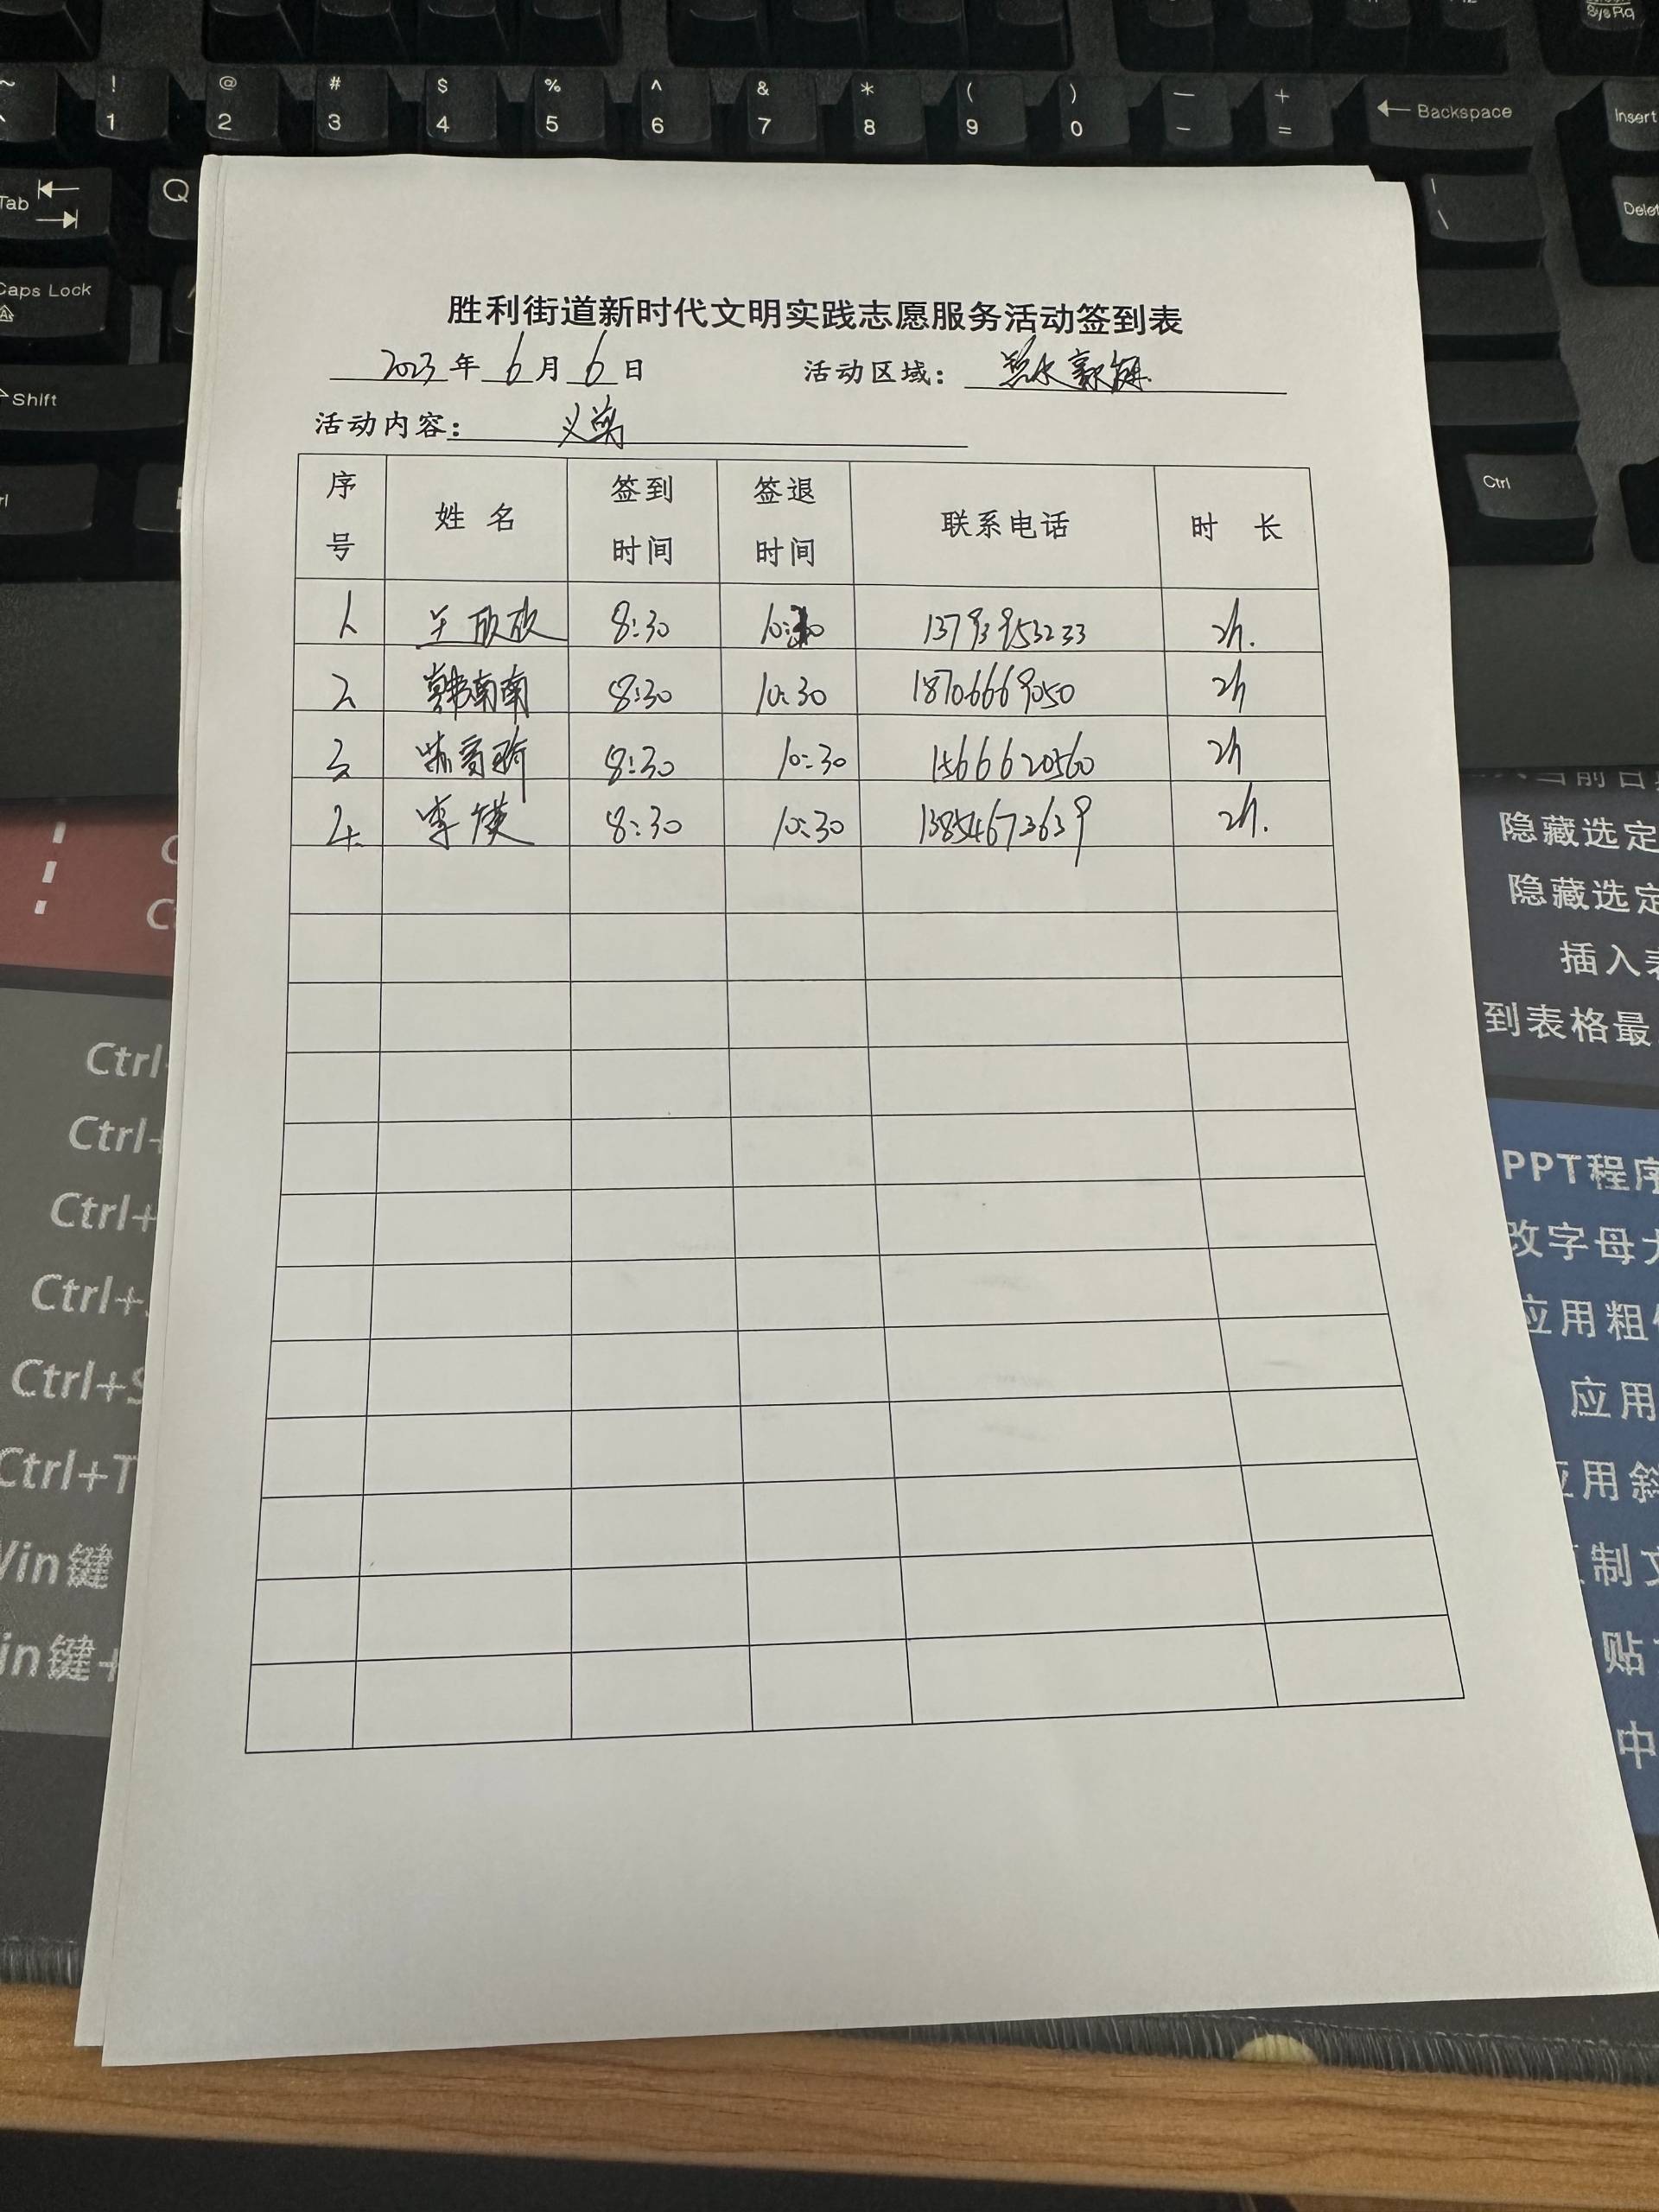 SysRq
~ ! @ # $ % ^ & * ( ) — +
1 2 3 4 5 6 7 8 9 0 - = ← Backspace Insert
Tab Q | \
Caps Lock
Shift
Ctrl
胜利街道新时代文明实践志愿服务活动签到表
2023 年 6 月 6 日 活动区域：
活动内容： 义剪
序号 姓 名 签到时间 签退时间 联系电话 时 长
1 王欣欣 8:30 10:30 13793953233 2h.
2 韩南南 8:30 10:30 18706669050 2h
3 8:30 10:30 15666620560 2h
4. 李 8:30 10:30 13854673639 2h.
隐藏选定
隐藏选定
插入表
到表格最
Ctrl+
Ctrl+
Ctrl+
Ctrl+
Ctrl+S
Ctrl+T
Win键
Win键+
PPT程序
改字母大
应用粗
应用
应用斜
制文
贴
中